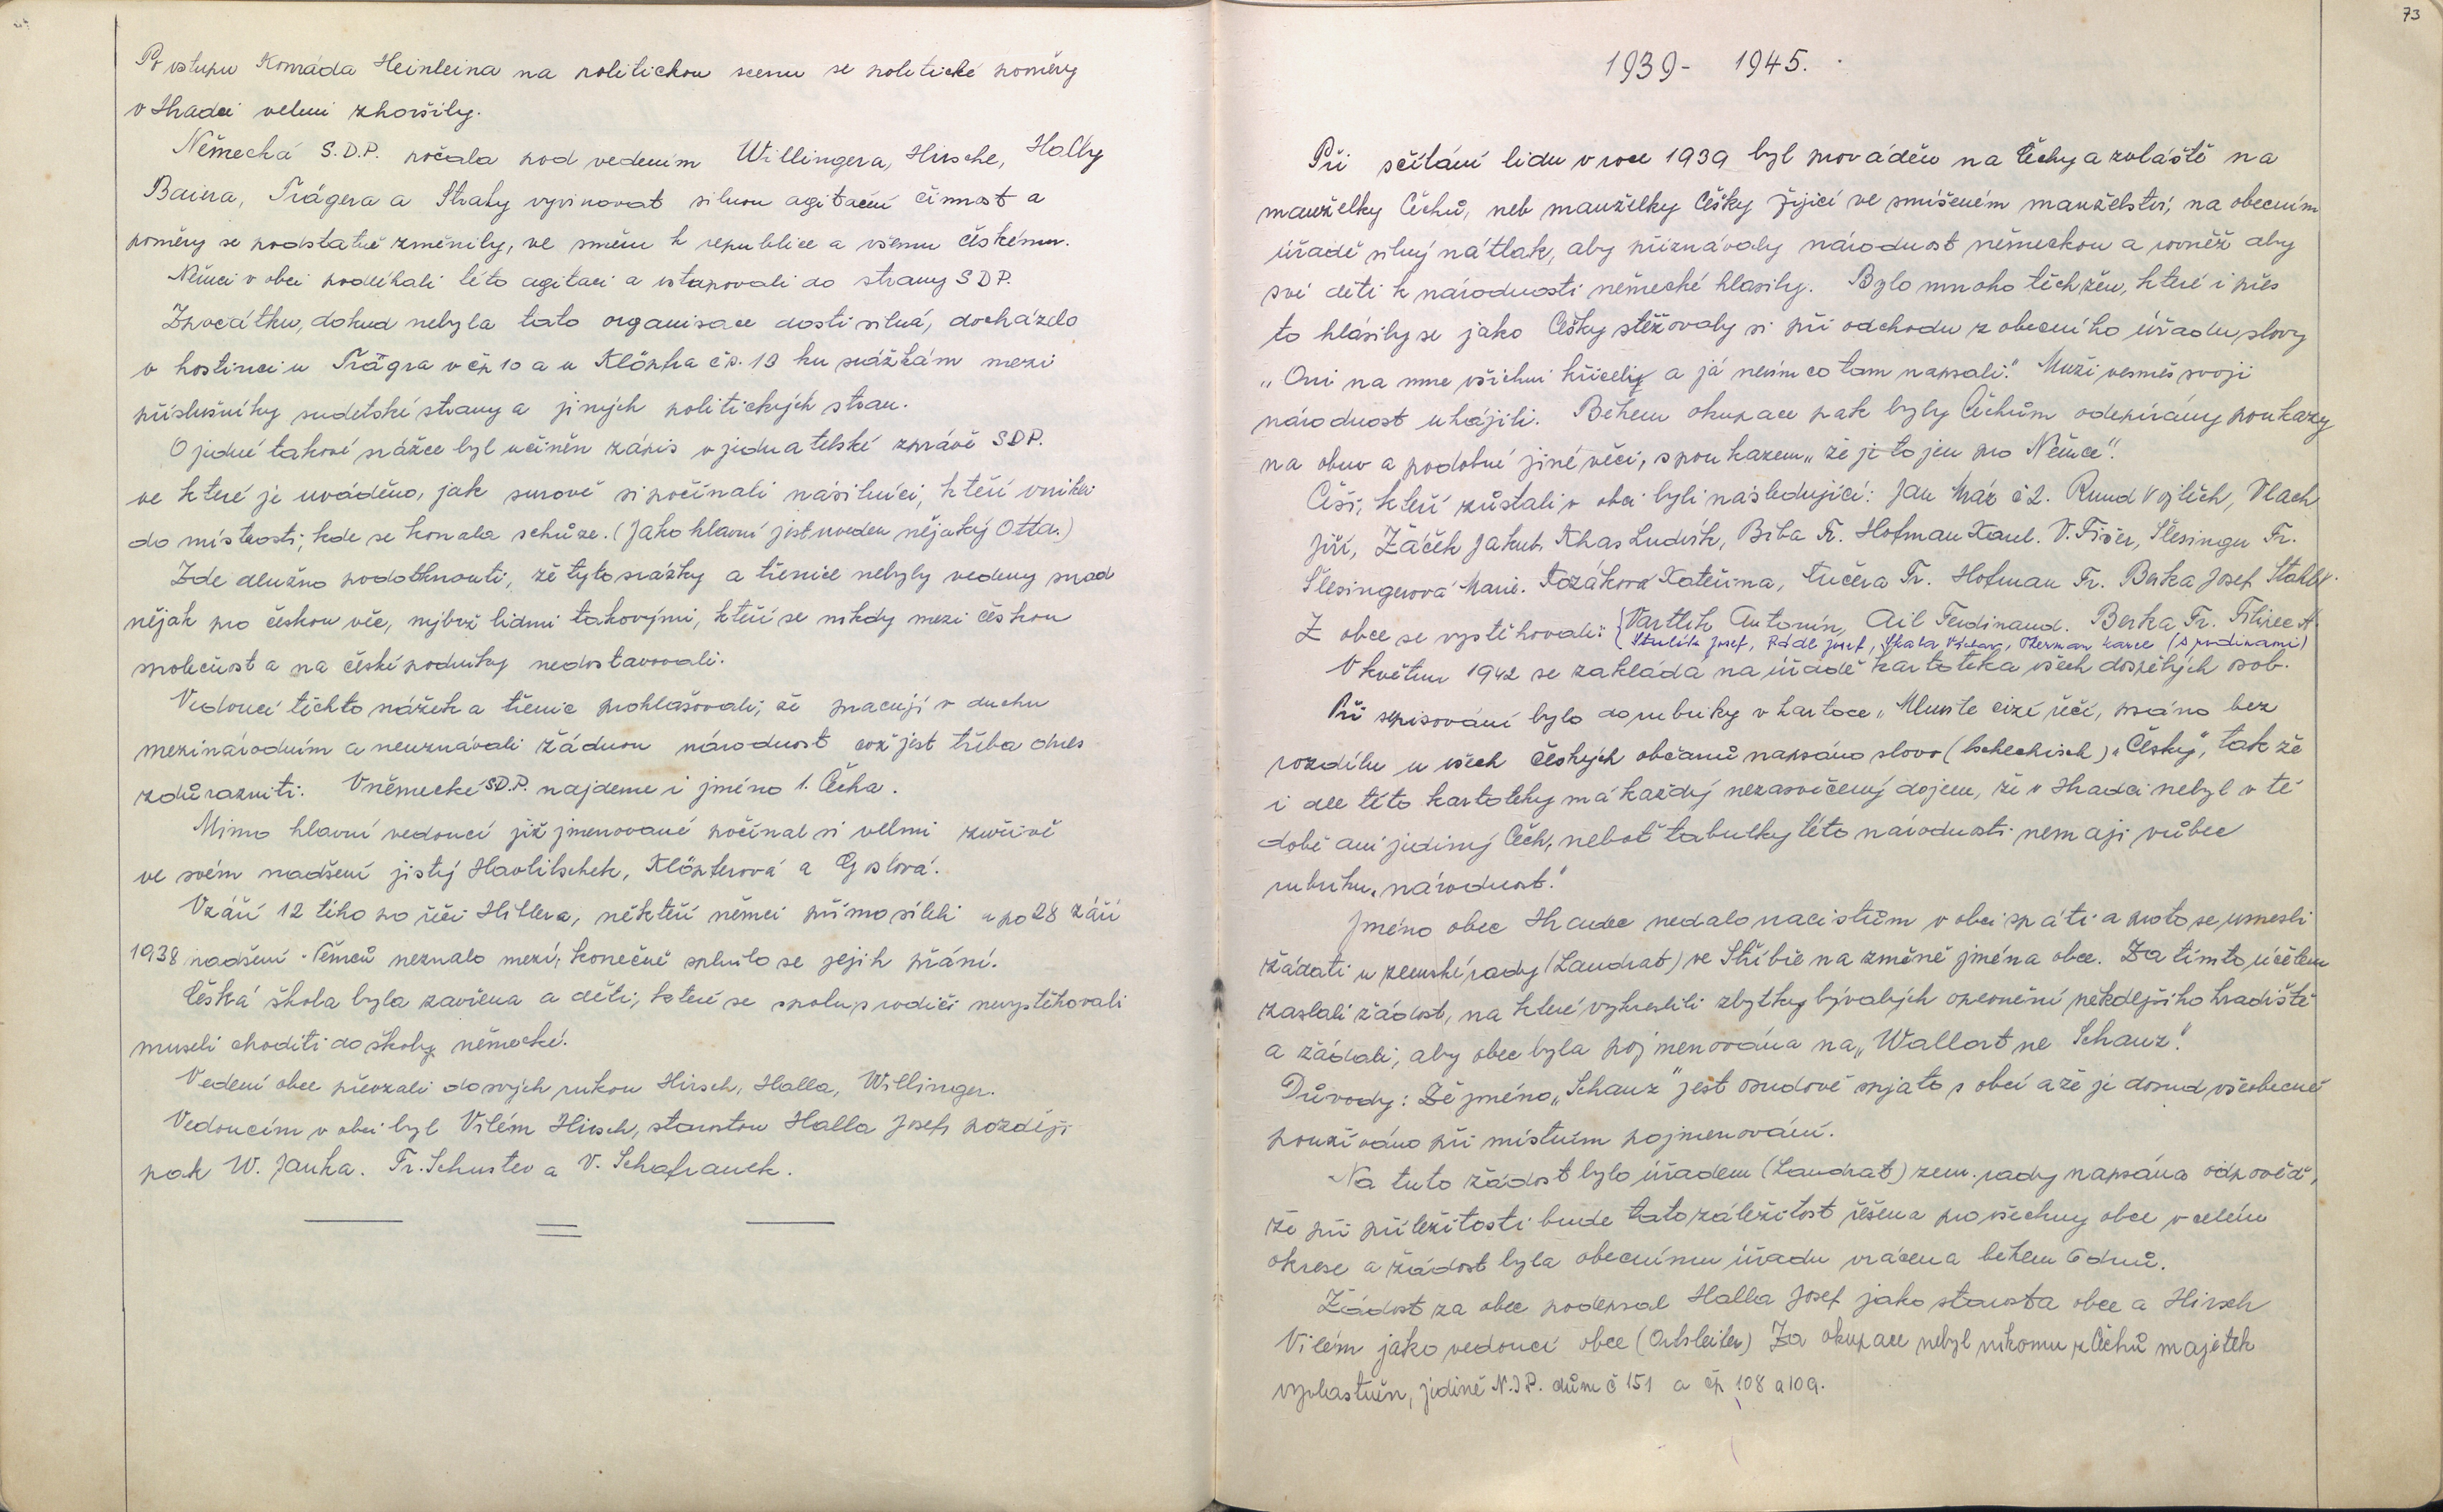 Po vstupu Konráda Heinleina na politickou scenu se politické poměry
v Hradci velmi zhoršily.
Německá S.D.P. počala pod vedením Willingera, Hirsche, Hally
Baiera, Trägera a Straky vyvinovat silnou agitační činnost a
poměry se podstatně změnily, ve směru k republice a všemu českému.
Němci v obci podléhali této agitaci a vstupovali do strany SDP.
Zpočátku, dokud nebyla tato organisace dosti silná, docházelo
v hostinci u Trägra v čp 10 a u Klöpfra čp. 13 ku srážkám mezi
příslušníky sudetské strany a jiných politických stran.
O jedné takové srážce byl učiněn zápis v jednatelské zprávě SDP.
ve které je uváděno, jak surově si počínali násilníci, kteří vnikli
do místnosti, kde se konala schůze. (Jako hlavní jest uveden nějaký Otta.)
Zde dlužno podotknouti, že tyto srážky a třenice nebyly vedeny snad
nějak pro českou věc, nýbrž lidmi takovými, kteří se nikdy mezi českou
společnost a na české podniky nedostavovali.
Vedoucí těchto srážek a třenic prohlašovali, že pracují v duchu
mezinárodním a neuznávali žádnou národnost což jest třeba dnes
zdůrazniti. V německé SD.P. najdeme i jméno 1. Čecha.
Mimo hlavní vedoucí již jmenované počínal si velmi zuřivě
ve svém nadšení jistý Havlitschek, Klöpferová a Goslová.
V září 12 tého po řeči Hitlera, někteří němci přímo šíleli a po 28 září
1938 nadšení Němců neznalo mezí, konečně splnilo se jejich přání.
Česká škola byla zavřena a děti, které se spolu s rodiči nevystěhovali
museli choditi do školy německé.
Vedení obce převzali do svých rukou Hirsch, Halla, Willinger.
Vedoucím v obci byl Vilém Hirsch, starostou Halla Josef, později
pak W. Janka. Fr. Schuster a V. Schafranek.
73
1939 - 1945.
Při sčítání lidu v roce 1939 byl prováděn na Čechy a zvláště na
manželky Čechů, neb manželky Češky žijící ve smíšeném manželství, na obecním
úřadě silný nátlak, aby přiznávaly národnost německou a rovněž aby
své děti k národnosti německé hlásily. Bylo mnoho těch žen, které i přes
to hlásily se jako Češky stěžovaly si při odchodu z obecního úřadu slovy
„Oni na mne všichni křičely a já nevím co tam napsali." Muži vesměs svoji
národnost uhájili. Během okupace pak byly Čechům odepírány poukazy
na obuv a podobné jiné věci, s poukazem „že je to jen pro Němce".
Češi, kteří zůstali v obci byli následující: Jan Mráz č 2. Rund Vojtěch, Vlach
Jiří, Žáček Jakub, Khas Ludvík, Biba Fr. Hofman Karel. V. Fišer, Šlesinger Fr.
Šlesingerová Marie. Kozáková Kateřina, Kučera Fr. Hofman Fr. Berka Josef Stahl V.
Z obce se vystěhovali: {Vartlík Antonín, Ail Ferdinand. Berka Fr. Filipec A.
Josef, Rádl Josef, Skala Václav, Karel (s rodinami)
V květnu 1942 se zakládá na úřadě kartoteka všech dospělých osob.
Při sepisování bylo do rubriky v kartoce „Mluvíte cizí řečí, psáno bez
rozdílu u všech českých občanů napsáno slovo (tschechisch) „Česky", tak že
i dle této kartoteky má každý nezasvěcený dojem, že v Hradci nebyl v té
době ani jediný Čech, neboť tabulky této národnosti nemají vůbec
rubriku „národnost."
Jméno obce Hradec nedalo nacistům v obci spáti a proto se usnesli
žádati u zemské rady (Landrat) ve Stříbře na změně jména obce. Za tímto účelem
zaslali žádost, na které vykreslili zbytky bývalých opevnění někdejšího hradiště
a žádali, aby obec byla pojmenována na „Wallort ne Schanz".
Důvody: Že jméno „Schanz" jest osudově spjato s obcí a že je dosud všeobecně
používáno při místním pojmenování.
Na tuto žádost bylo úřadem (Landrat) zem. rady napsána odpověď,
že při příležitosti bude tato záležitost řešena pro všechny obce v celém
okrese a žádost byla obecnímu úřadu vrácena během 6 dnů.
Žádost za obec podepsal Halla Josef jako starosta obce a Hirsch
Vilém jako vedoucí obce (Ortsleiter) Za okupace nebyl nikomu z Čechů majetek
vyvlastněn, jedině N.J.P. dům č 151 a čp 108 a 109.